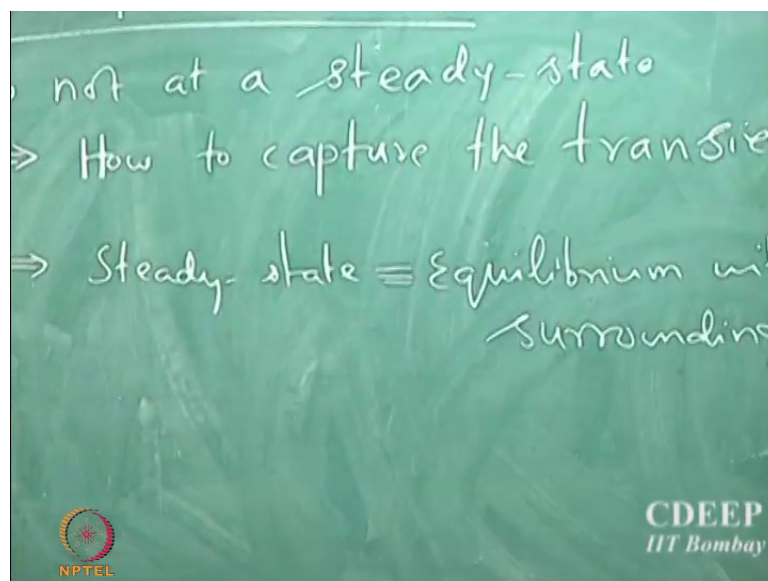 not at a steady-state
⇒ How to capture the transie
⇒ Steady-state ≡ Equilibrium wi
surrounding
CDEEP
IIT Bombay
NPTEL